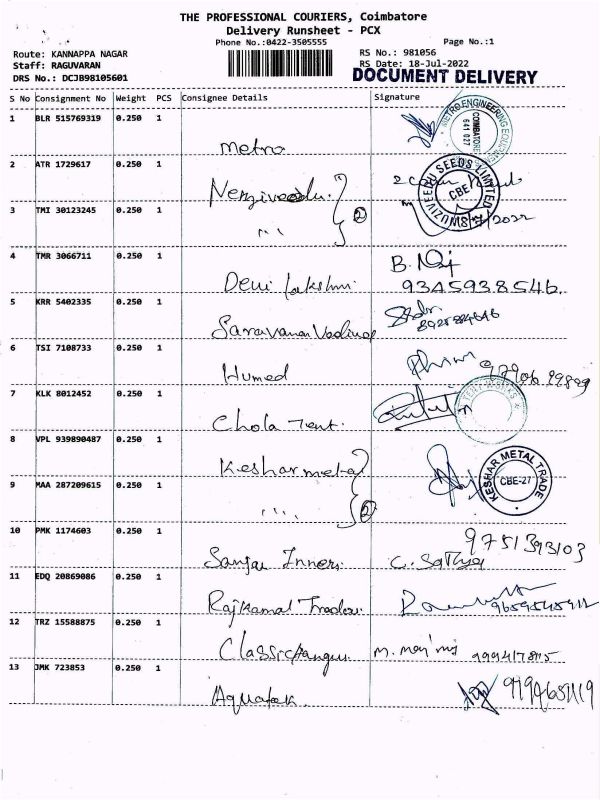 THE PROFESSIONAL COURIERS, Coimbatore
Delivery Runsheet - PCX
Phone No.:0422-3505555
Page No.:1
Route: KANNAPPA NAGAR
RS No.: 981056
Staff: RAGUVARAN
RS Date: 18-Jul-2022
DRS No.: DCJB98105601
DOCUMENT DELIVERY
S No Consignment No Weight PCS Consignee Details Signature
1 BLR 515769319 0.250 1
METRO ENGINEERING
COIMBATORE
641 027
Metro
2 ATR 1729617 0.250 1
NUZIVEEDU SEEDS LIMITED
CBE
2
3 TMI 30123245 0.250 1
4 TMR 3066711 0.250 1
B.
Devi Lakshmi
9345938546
5 KRR 5402335 0.250 1
Saravanan
6 TSI 7108733 0.250 1
Humed
7 KLK 8012452 0.250 1
WORKS
Chola Tent.
8 VPL 939890487 0.250 1
Keshar metal
KESHAR METAL TRADE
CBE-27
9 MAA 287209615 0.250 1
2
10 PMK 1174603 0.250 1
9751393103
C. Sathya
11 EDQ 20869086 0.250 1
Rajkamal
12 TRZ 15588875 0.250 1
M.
13 JMK 723853 0.250 1
Aquatek